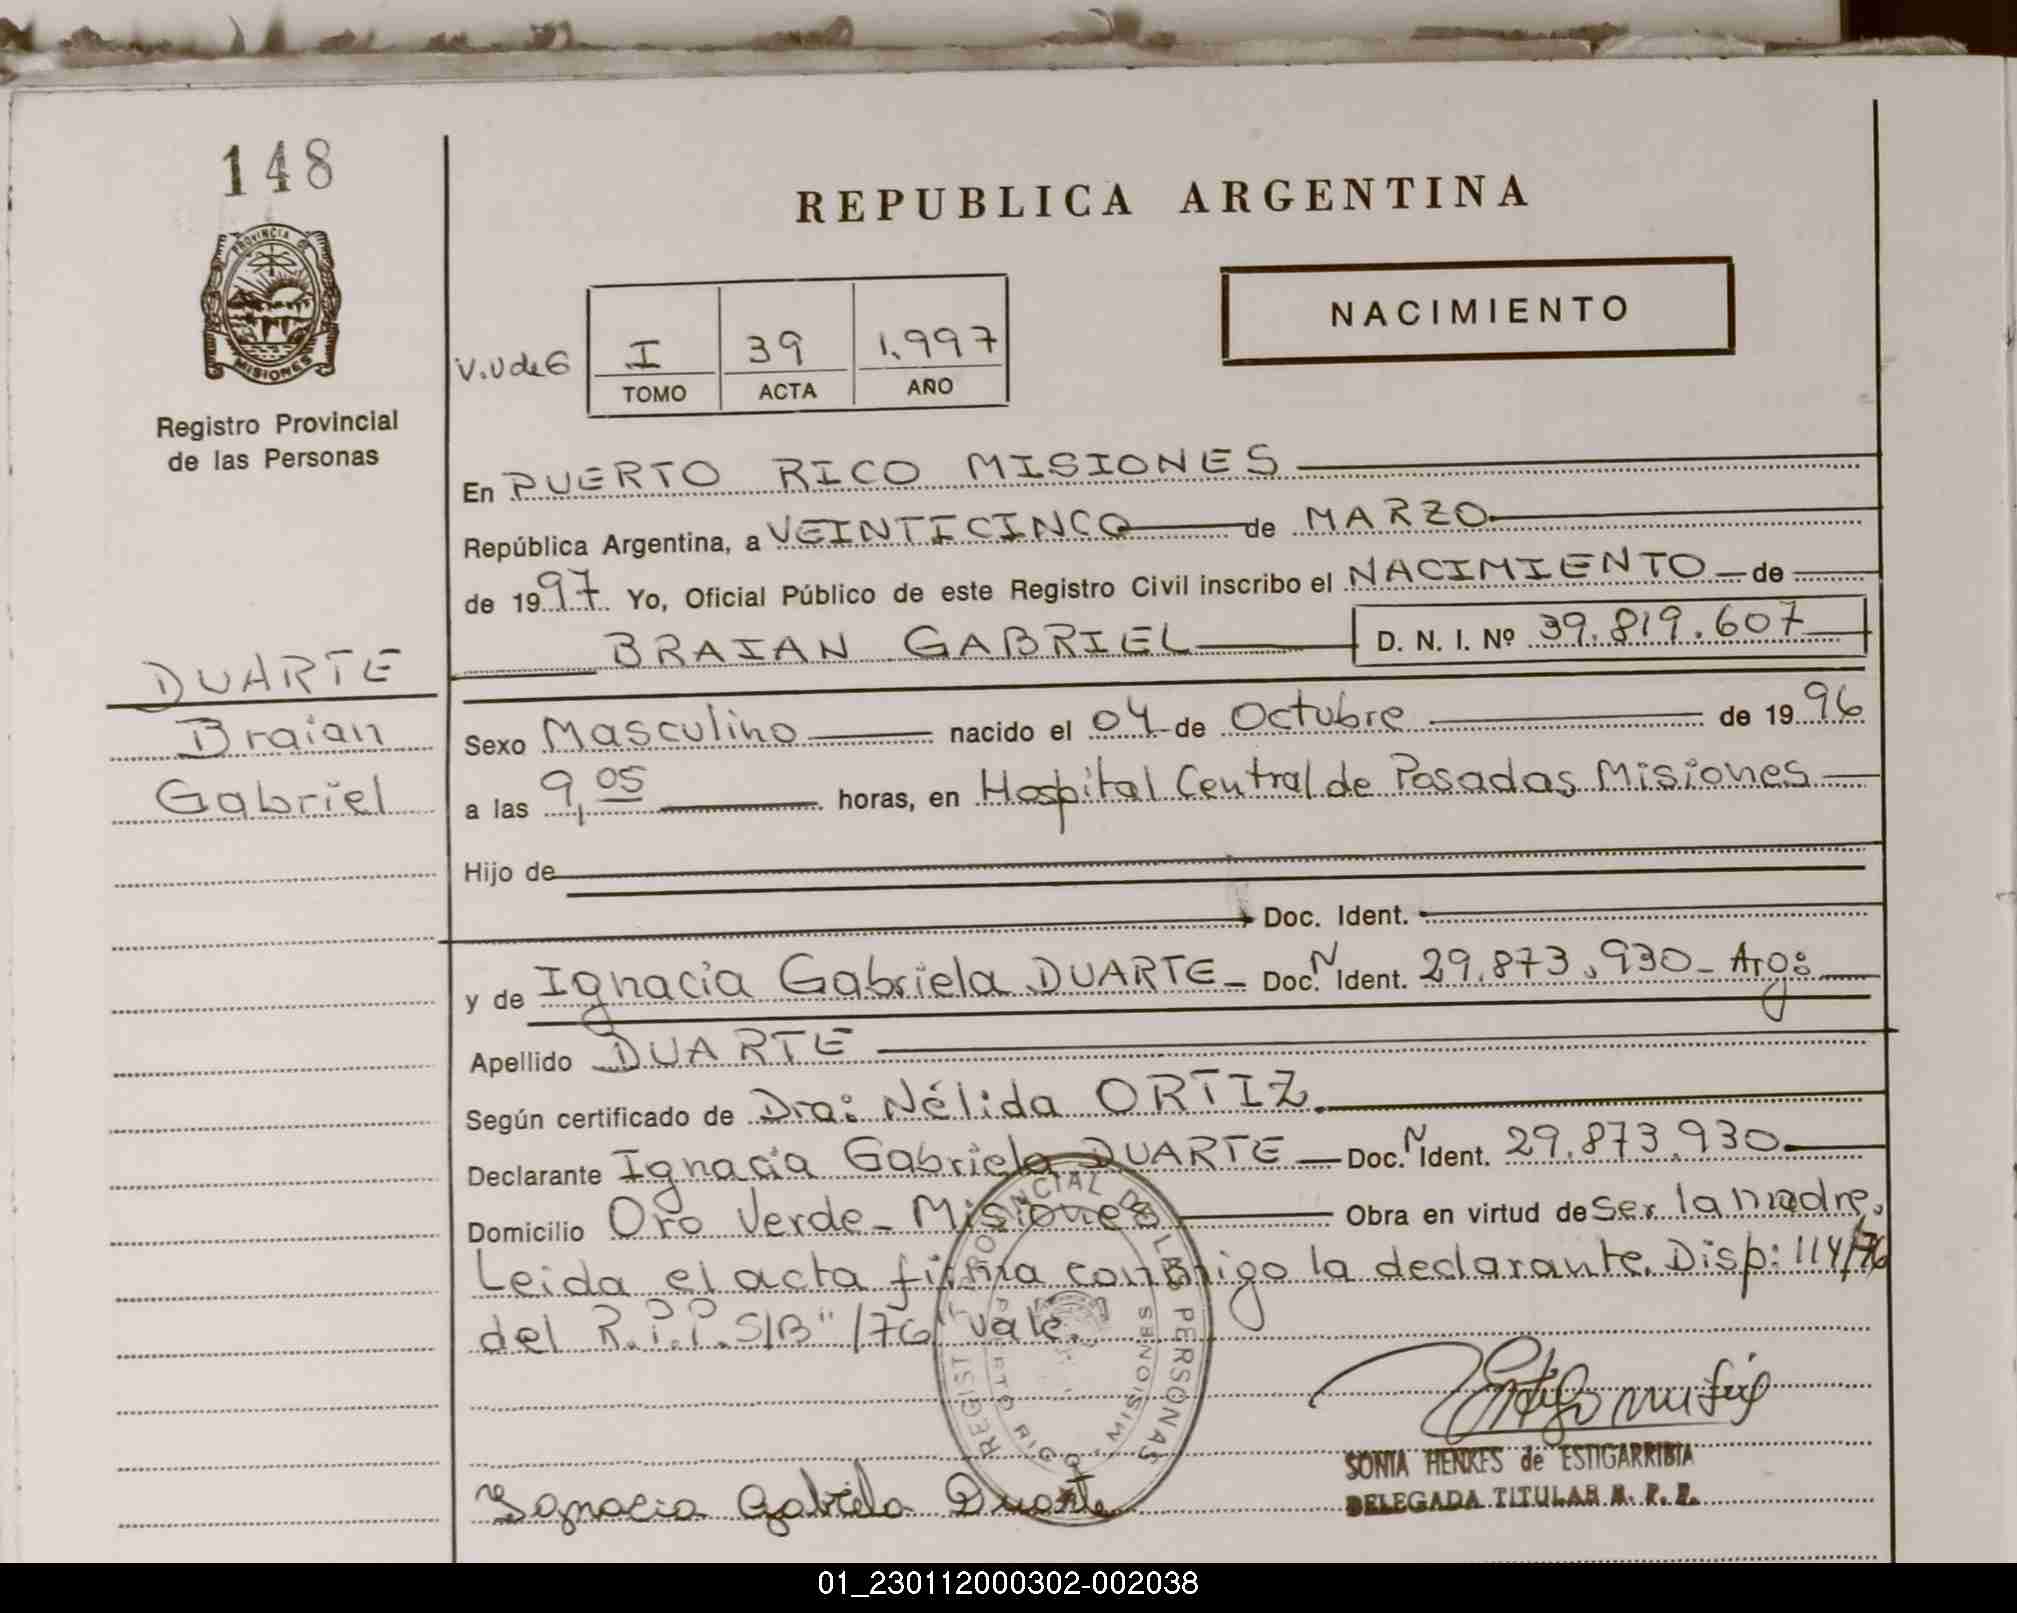 148
PROVINCIA DE
MISIONES
Registro Provincial
de las Personas
REPUBLICA ARGENTINA
NACIMIENTO
V.U de 6
I 39 1.997
TOMO ACTA AÑO
En PUERTO RICO MISIONES
República Argentina, a VEINTICINCO de MARZO
de 1997 Yo, Oficial Público de este Registro Civil inscribo el NACIMIENTO de
BRAIAN GABRIEL D. N. I. Nº 39.819.607
DUARTE
Braian
Gabriel
Sexo Masculino nacido el 04 de Octubre de 1996
a las 9,05 horas, en Hospital Central de Posadas Misiones
Hijo de
Doc. Ident.
y de Ignacia Gabriela DUARTE - Doc. N Ident. 29.873.930 - Arg:
Apellido DUARTE
Según certificado de Dra: Nélida ORTIZ.
Declarante Ignacia Gabriela DUARTE - Doc. N Ident. 29.873.930
Domicilio Oro Verde - Misiones Obra en virtud de ser la madre.
Leida el acta firma conmigo la declarante. Disp: 114/76
del R.P.P. S/B" /76" Vale.
REGIST PROVINCIAL DE LAS PERSONAS
PUERTO RICO MISIONES
Ignacia Gabriela Duarte
SONIA HENKES de ESTIGARRIBIA
DELEGADA TITULAR R. P. P.
01_230112000302-002038